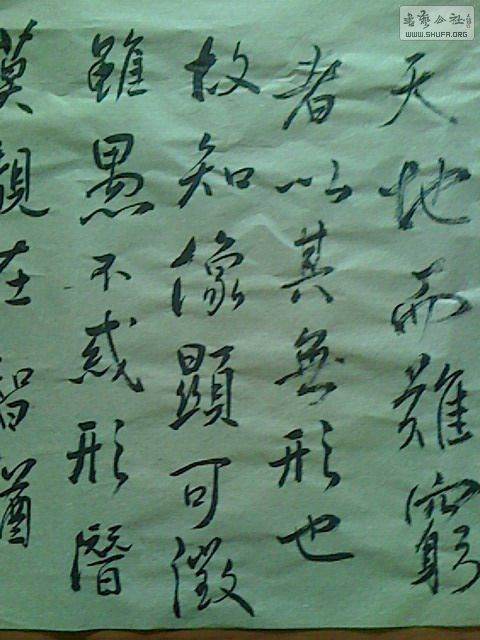 天地而难窮
者以其無形也
故知像顯可徵
雖愚不惑形潛
莫覩在智猶
書藝公社
WWW.SHUFA.ORG